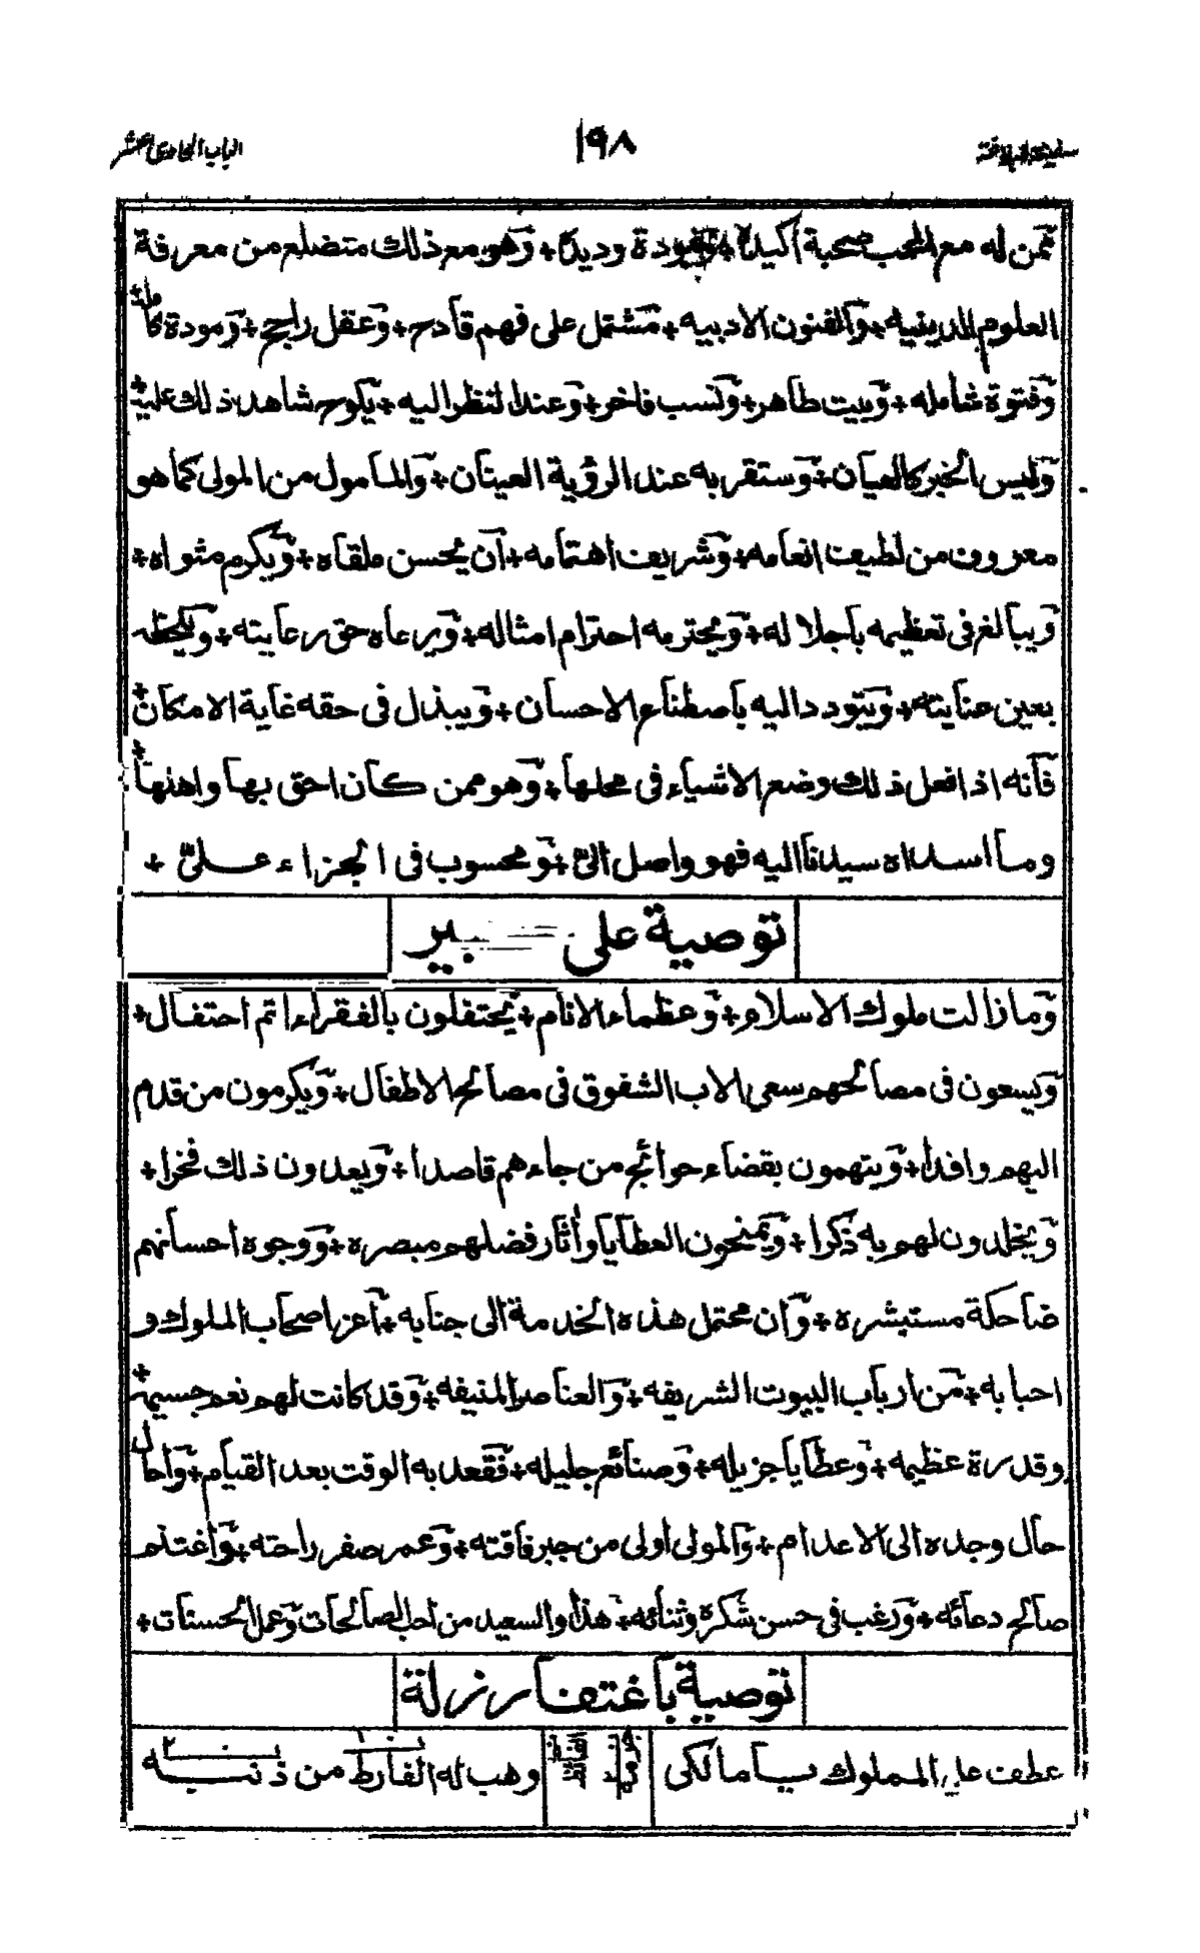 سفينة البلاغة
١٩٨
الباب الحادى عشر
ممن له مع المحب صحبة اكيدة + ومودة وديدة + وهو مع ذلك متضلع من معرفة
العلوم الدينيه + والفنون الادبيه + مشتمل على فهم قادح + وعقل راجح + ومودة كاملة +
وفتوة شامله + وبيت طاهر + ونسب فاخر + وعند النظر اليه + يلوح شاهد ذلك عليه +
وليس الخبر كالعيان + وستقر به عند الرؤية العينان + والمامول من المولى كما هو
معروف من لطيف انعامه + وشريف اهتمامه + ان يحسن ملقاه + ويكرم مثواه +
ويبالغ فى تعظيمه باجلاله + ويحترمه احترام امثاله + ويرعاه حق رعايته + ويلحظه
بعين عنايته + ويتودد اليه باصطناع الاحسان + ويبذل فى حقه غاية الامكان +
فانه اذا فعل ذلك وضع الاشياء فى محلها + وهو ممن كان احق بها واهلها +
وما اسداه سيدنا اليه فهو واصل الىّ + ومحسوب فى الجزاء علىّ +
توصية على
وما زالت ملوك الاسلام + وعظماء الانام + يحتفلون بالفقراء اتم احتفال +
ويسعون فى مصالحهم سعي الاب الشفوق فى مصالح الاطفال + ويكرمون من قدم
اليهم وافدا + ويتهمون بقضاء حوائج من جاءهم قاصدا + ويعدون ذلك فخرا +
ويخلدون لهم به ذكرا + ويمنحون العطايا واثار فضلهم مبصره + ووجوه احسانهم
ضاحكة مستبشره + وان محتمل هذه الخدمة الى جنابه + اعز اصحاب الملوك و
احبابه + من ارباب البيوت الشريفه + والعناصر المنيفه + وقد كانت لهم نعم جسيمة +
وقدرة عظيمه + وعطايا جزيله + وصنائع جليله + فقعد به الوقت بعد القيام + واحال
حال وجده الى الاعدام + والمولى اولى من جبر فاقته + وعمر صفر راحته + واغتنم
صالح دعائه + ورغب فى حسن شكره وثنائه + هذا والسعيد من احب الصالحات وعمل الحسنات +
توصية باغتفار زلة
عطف على المملوك يا مالكى
وهب له الفارط من ذنبه